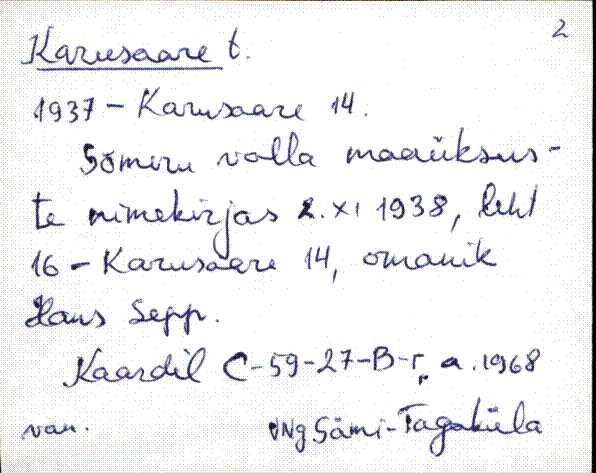 2
Karusaare t.
1937 - Karusaare 14.
Sõmeru valla maaüksus-
te nimekirjas 2. XI 1938, leht
16 - Karusaare 14, omanik
Hans Sepp.
Kaardil C-59-27-B-г, a. 1968
van. VNg Sämi-Tagaküla